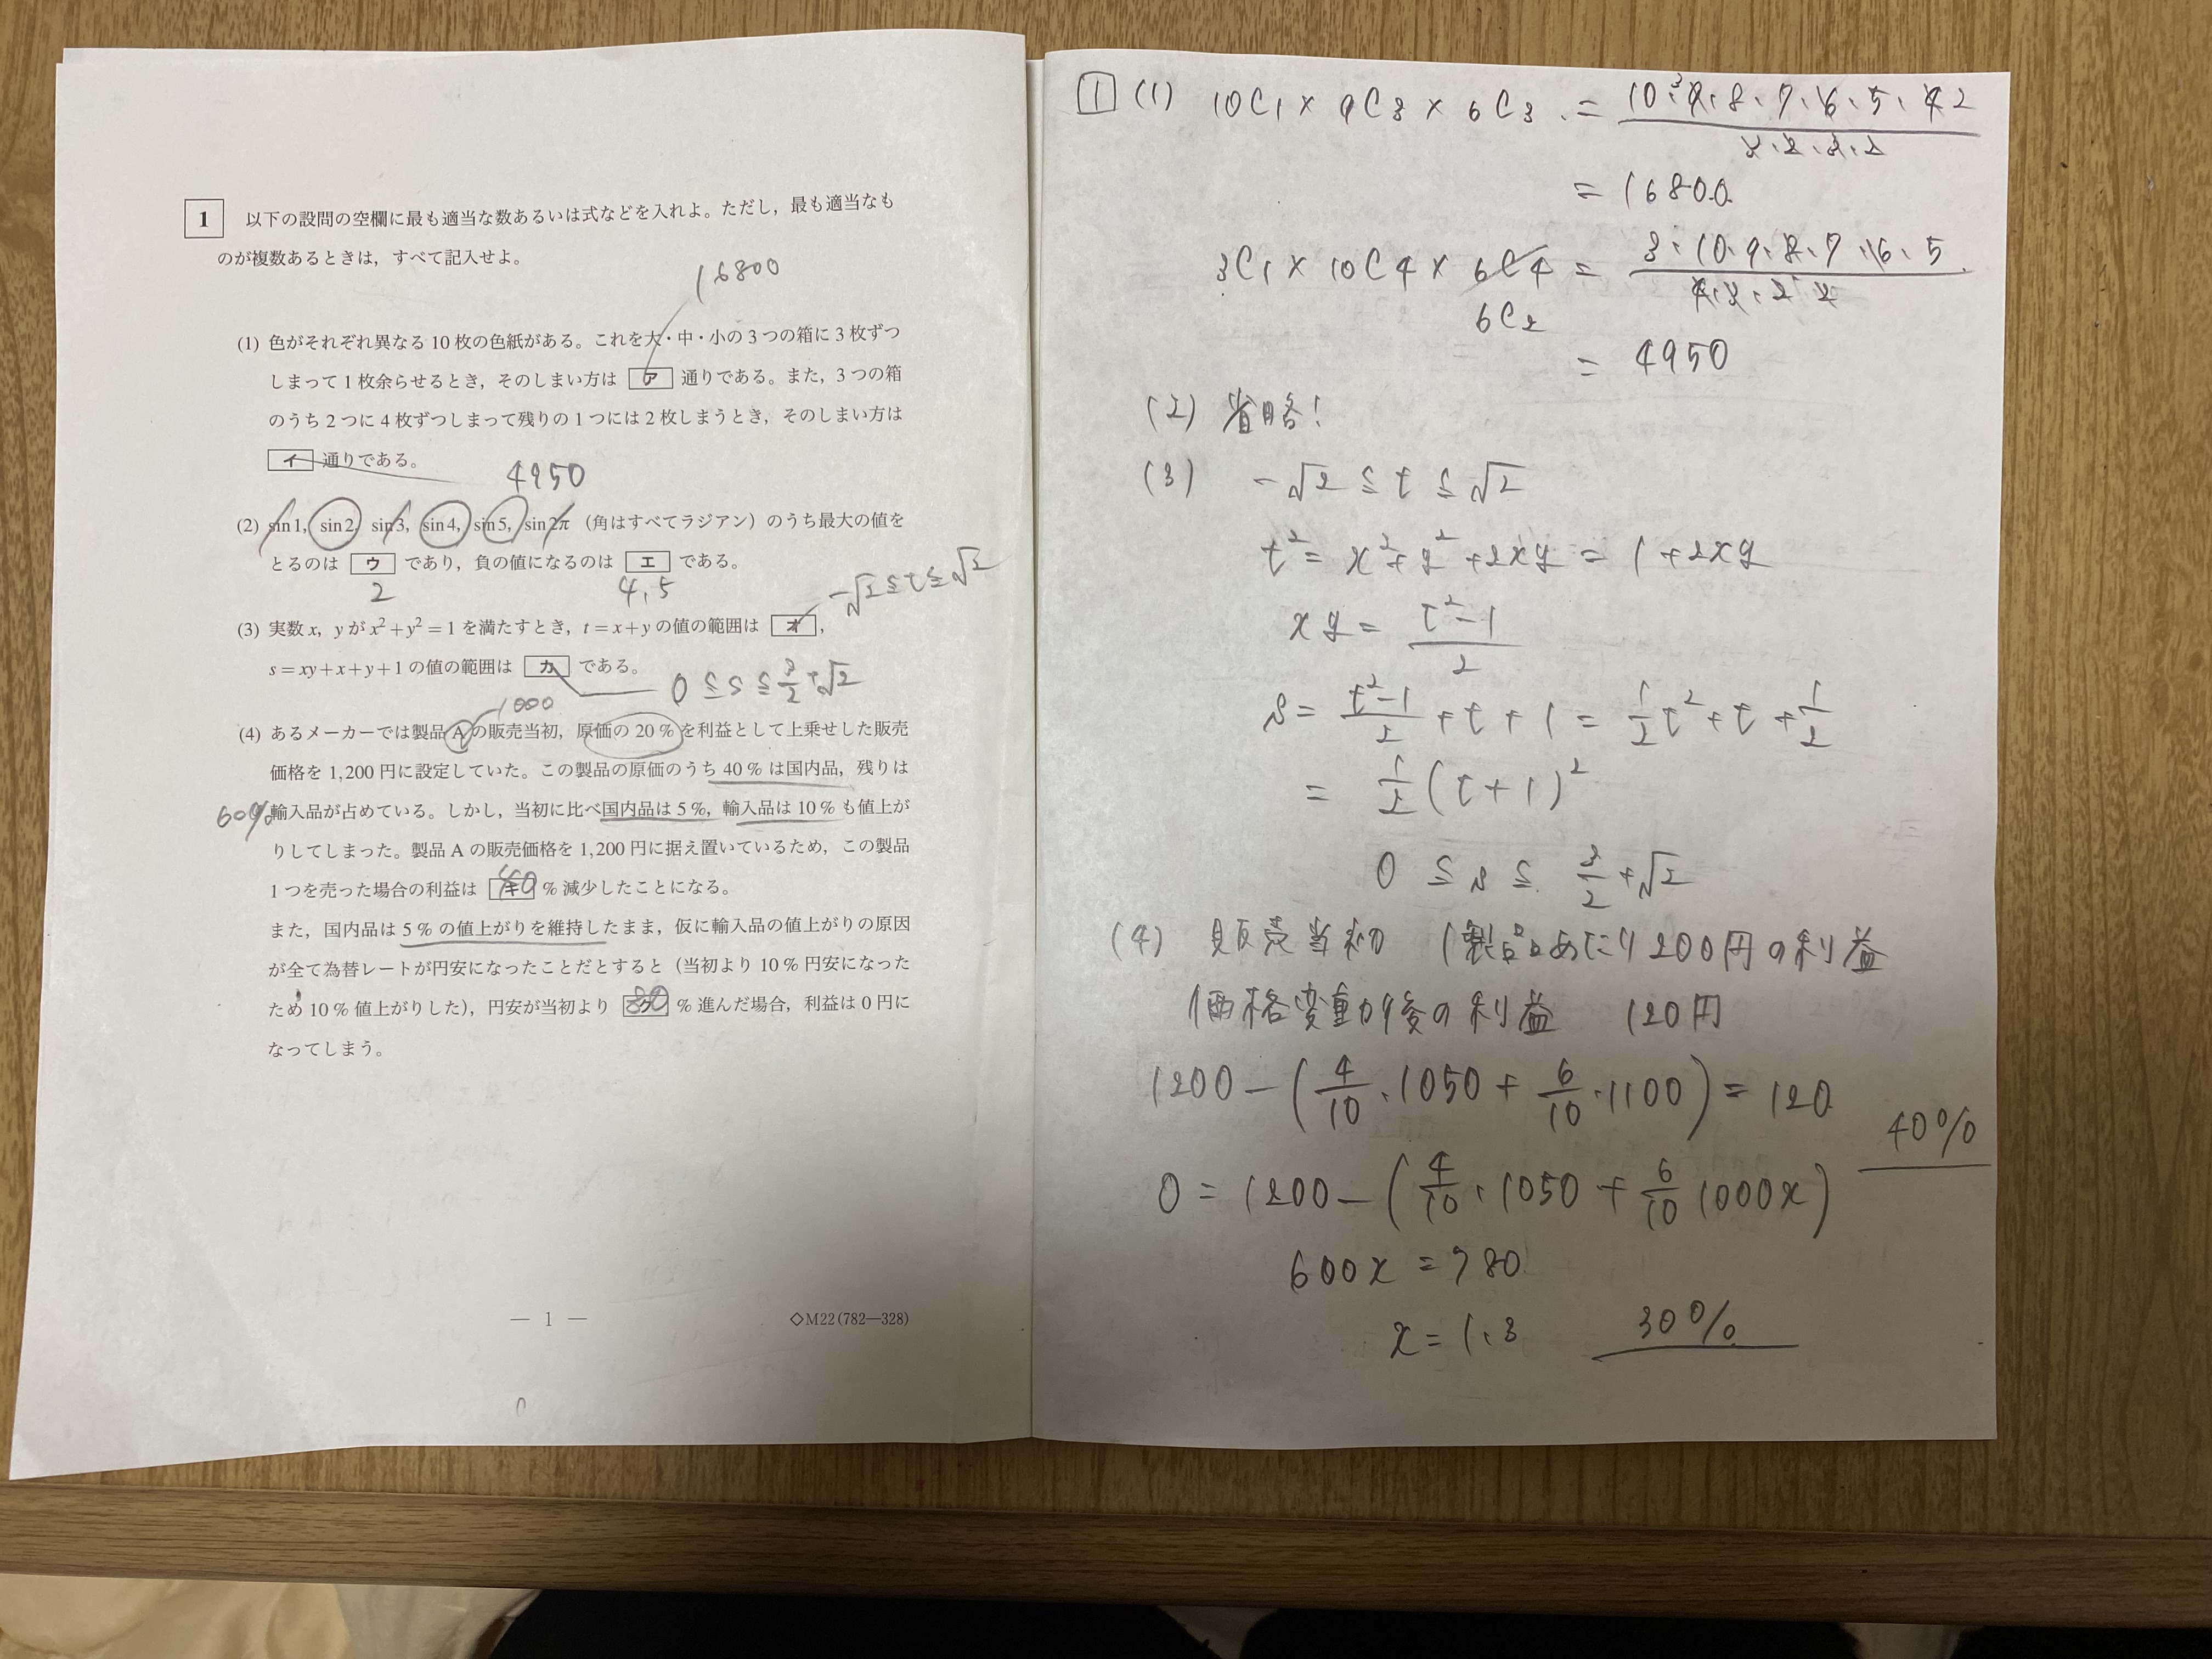 1 以下の設問の空欄に最も適当な数あるいは式などを入れよ。ただし，最も適当なも
のが複数あるときは，すべて記入せよ。
16800
(1) 色がそれぞれ異なる 10 枚の色紙がある。これを大・中・小の 3 つの箱に 3 枚ずつ
しまって 1 枚余らせるとき，そのしまい方は ア 通りである。また，3 つの箱
のうち 2 つに 4 枚ずつしまって残りの 1 つには 2 枚しまうとき，そのしまい方は
イ 通りである。
4950
(2) sin 1, sin 2, sin 3, sin 4, sin 5, sin 2π （角はすべてラジアン）のうち最大の値を
とるのは ウ であり，負の値になるのは エ である。
2 4, 5
-√2 ≦ t ≦ √2
(3) 実数 x, y が x²+y²=1 を満たすとき，t=x+y の値の範囲は オ ，
s=xy+x+y+1 の値の範囲は カ である。
0 ≦ s ≦ 3/2+√2
1000
(4) あるメーカーでは製品 A の販売当初，原価の 20 % を利益として上乗せした販売
価格を 1,200 円に設定していた。この製品の原価のうち 40 % は国内品，残りは
60% 輸入品が占めている。しかし，当初に比べ国内品は 5 %，輸入品は 10 % も値上が
りしてしまった。製品 A の販売価格を 1,200 円に据え置いているため，この製品
1 つを売った場合の利益は キ 40 % 減少したことになる。
また，国内品は 5 % の値上がりを維持したまま，仮に輸入品の値上がりの原因
が全て為替レートが円安になったことだとすると（当初より 10 % 円安になった
ため 10 % 値上がりした），円安が当初より ク 30 % 進んだ場合，利益は 0 円に
なってしまう。
— 1 —
◇M22(782—328)
1 (1) 10C1 × 9C3 × 6C3 = 10·9·8·7·6·5·4 / 3·2·3·2
= 16800
3C1 × 10C4 × 6C4 = 3·10·9·8·7·6·5 / 4·3·2·2
6C2
= 4950
(2) 省略!
(3) -√2 ≦ t ≦ √2
t² = x²+y²+2xy = 1+2xy
xy = (t²-1)/2
s = (t²-1)/2 + t + 1 = 1/2 t² + t + 1/2
= 1/2 (t+1)²
0 ≦ s ≦ 3/2+√2
(4) 販売当初 1製品あたり200円の利益
価格変動後の利益 120円
1200 - (4/10·1050 + 6/10·1100) = 120
40%
0 = 1200 - (4/10·1050 + 6/10 1000x)
600x = 780
x = 1.3 30%